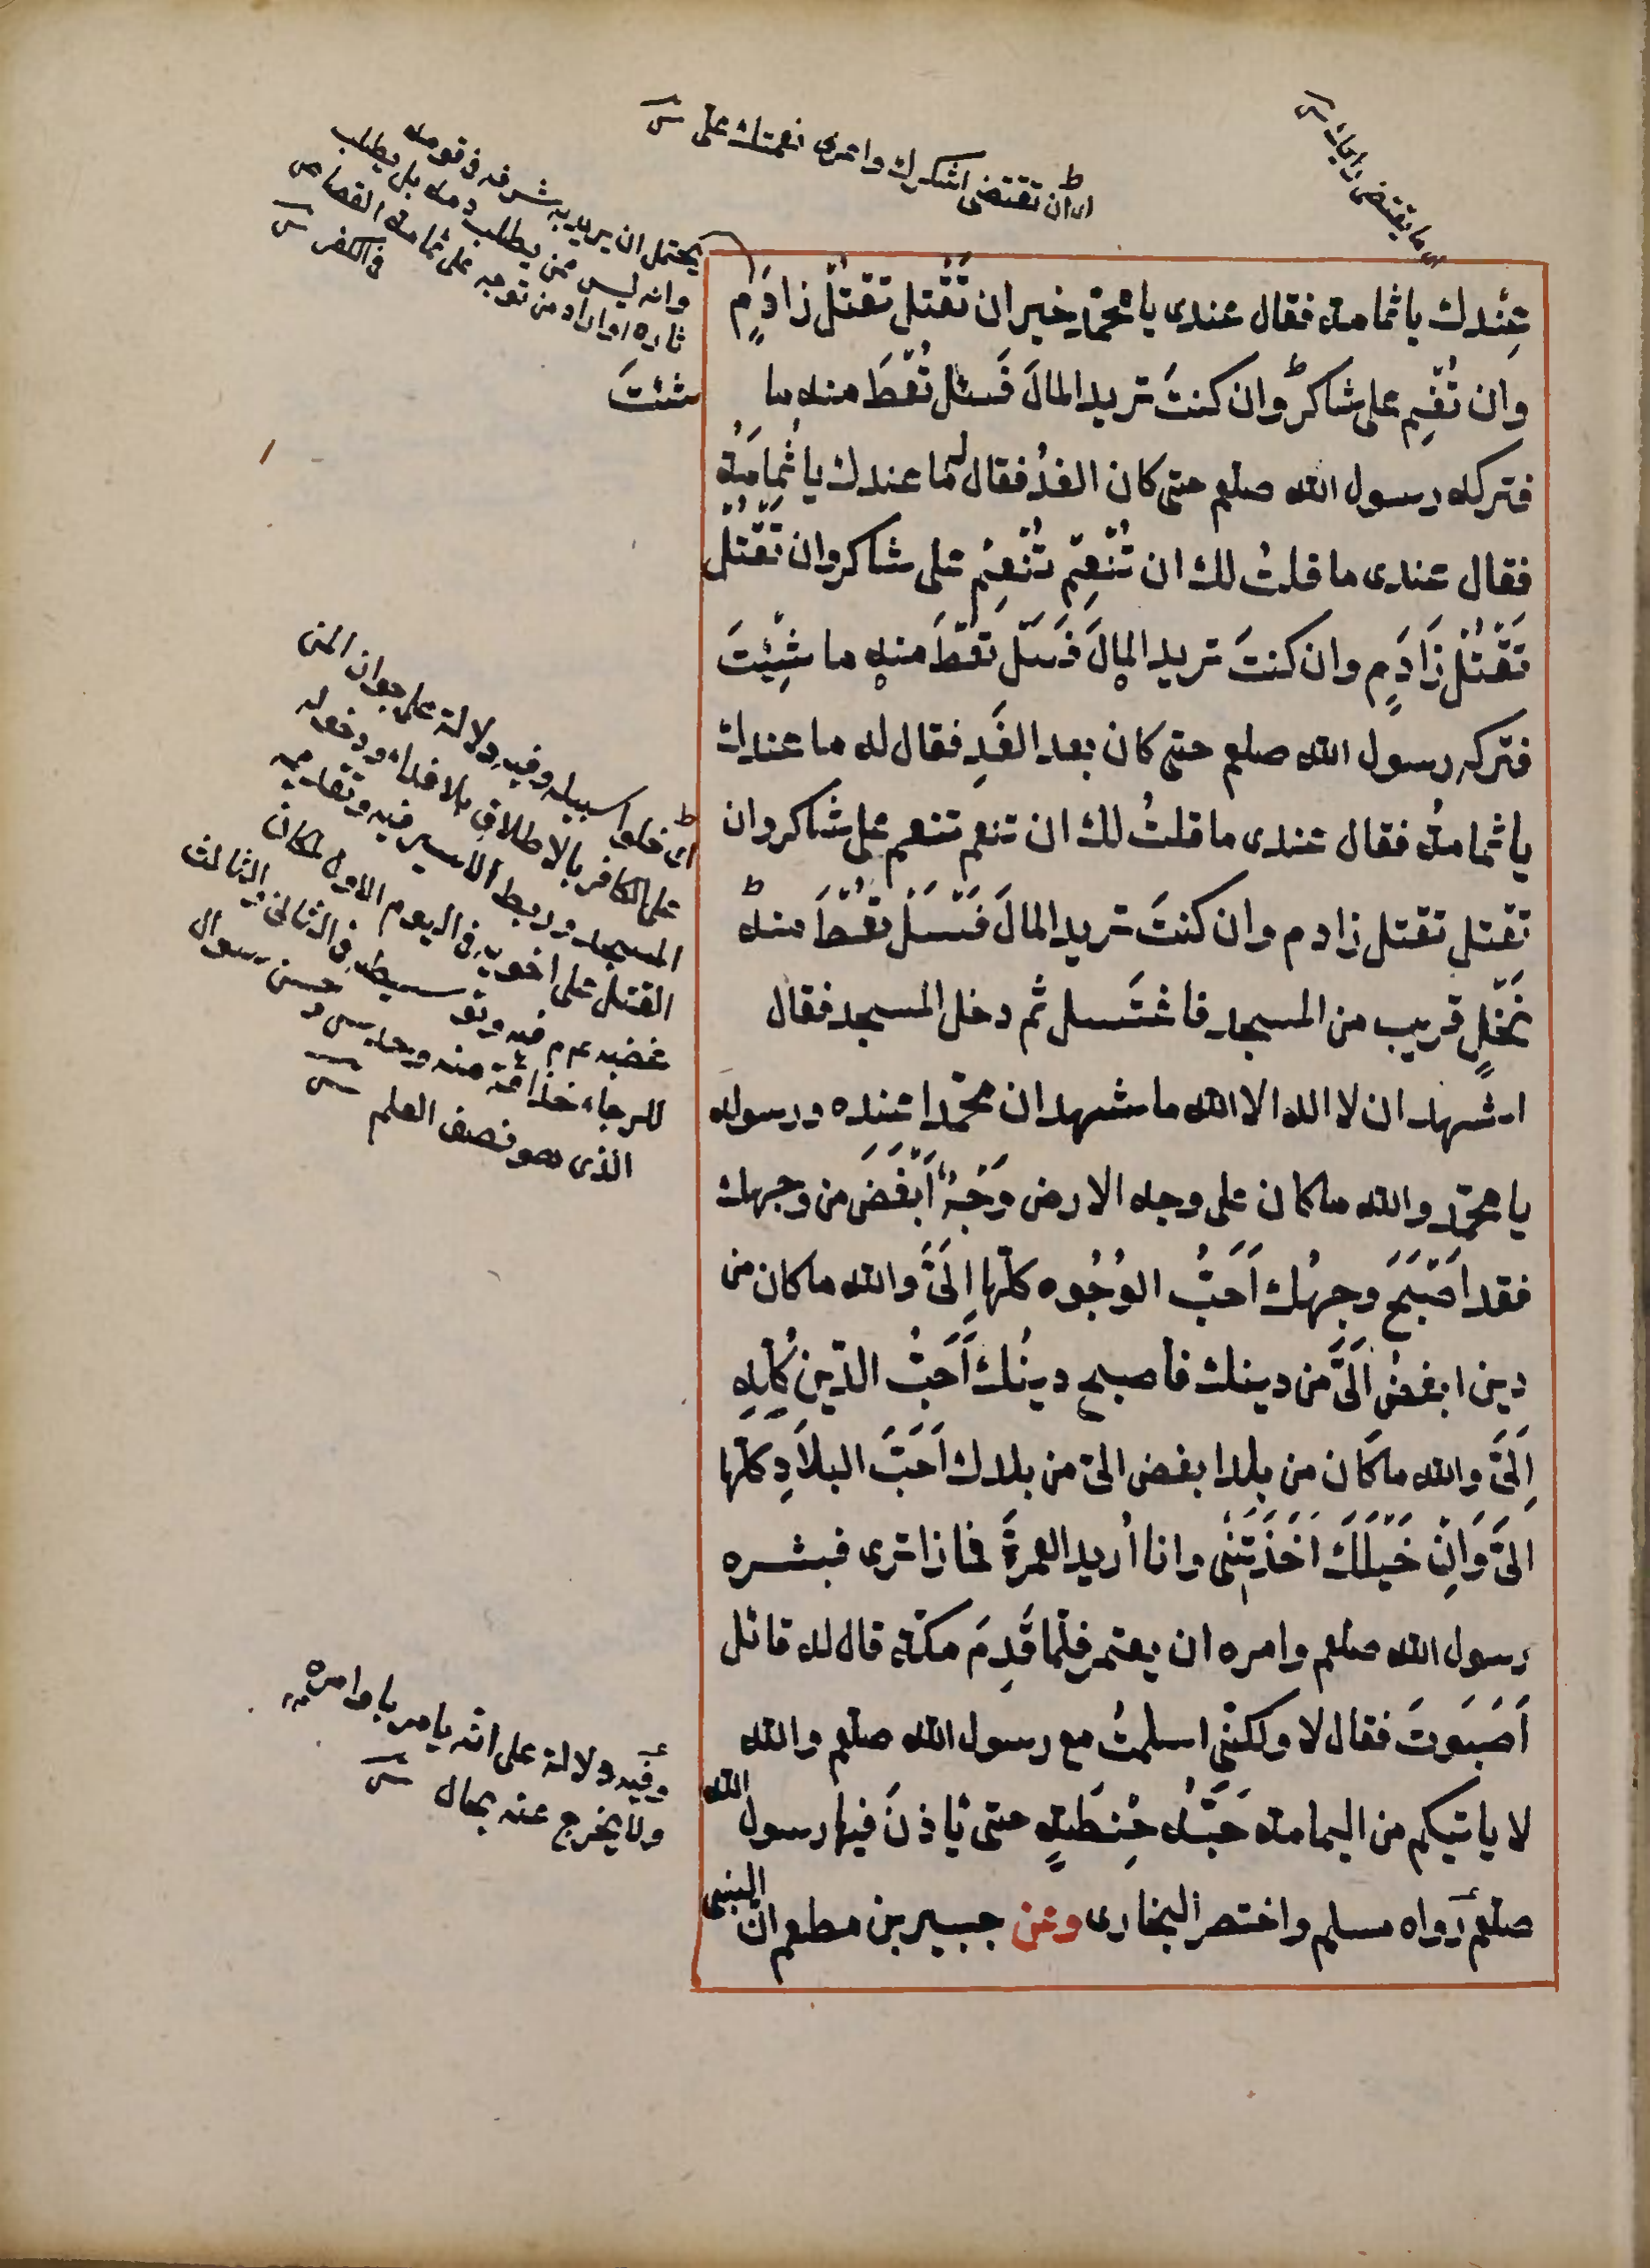 اى ما يقتضى رايك ش
اى ان تقتضى اشكرك واعرف نعمتك على ش
يحتمل ان يريد به شرفه فى قومه
وانه ليس ممن يطلب دمه بل يطلب
ثاره او اراد من توجه على ثمامة القصاص
فى الكفر ش
عِنْدك يا ثمامة فقال عندى يا محمّد خير ان تَقْتل تقتُلْ ذا دَمٍ
وان تُنْعِم على شاكر وان كنتَ تريد المالَ فَسئل تُعْطَ منه ما شئتَ
فتركه رسول الله صلعم حتى كان الغدُ فقال له ما عندك يا ثُمامَةُ
فقال عندى ما قلتُ لك ان تُنْعِمْ تُنْعِمْ على شاكر وان تَقْتُلْ
تَقْتُلْ ذَا دَمٍ وان كنتَ تريد المالَ فَسَلْ تُعْطَ منه ما شِئْتَ
فتركه رسول الله صلعم حتى كان بعد الغَدِ فقال له ما عندك
يا ثمامةُ فقال عندى ما قلتُ لك ان تنعم تنعم على شاكر وان
تقتل تقتل ذا دم وان كنتَ تريد المالَ فَسَلْ تُعْطَ منه
نَخْلٍ قريب من المسجد فاغْتَسل ثم دخل المسجد فقال
اشهد ان لا اله الا الله ما شهد ان محمّدا عنده ورسوله
يا محمّد والله ما كان على وجه الارض وَجْهٌ اَبْغَضَ من وجهك
فقد اَصْبَحَ وجهُك اَحَبُّ الوُجُوه كلّها اِلَىَّ والله ما كان من
دين ابغضُ اَلَىَّ من دينك فأصبح دينُك اَحَبُّ الدّين كُلِّهِ
اِلَىَّ والله ما كَان من بلد ابغض الىّ من بلدك اَحَبَّ البلاَدِ كلّها
الىَّ وَاِنّ خَيْلَكَ اَخَذَتْنِى وانا اُريد العمرةَ فماذا ترى فبشره
رسول الله صلعم وامره ان يعتمر فلمّا قَدِمَ مكّة قال له قائل
اَصَبَوتَ فقال لا ولكنّى اسلمتُ مع رسول الله صلعم والله
لا ياتيكم من اليمامة حَبّةُ حِنطةٍ حتى يَاْذنَ فيها رسول الله
صلعم رواه مسلم واختصر البخارى وعن جبير بن مطعم انّ النبى
اى خلوا سبيله وفيه دلالة على جواز المن
على الكافر بالاطلاق بلا فداء ودخوله
المسجد وربط الاسير فيه وتقديمه
القتل على اخويه فى اليوم الاول لمكان
غضبه عم م فيه وتوسيطه فى الثانى والثالث
للرجاء حذاقة منه وحدس وحسن سوال
الذى هو نصف العلم ش
وفيه دلالة على انّه يامر باوامره
ولا يخرج عنه بحال ش